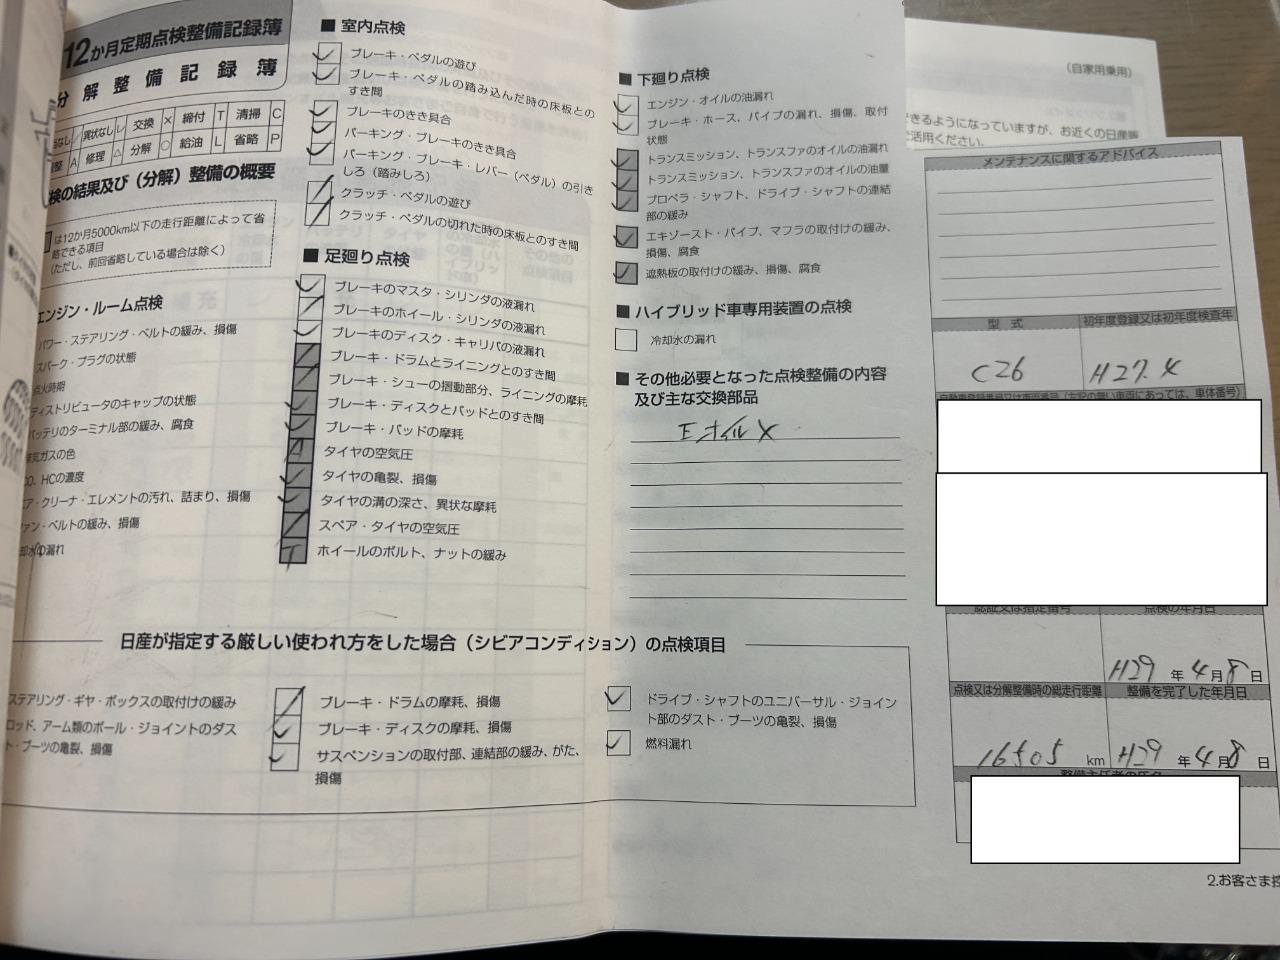 12か月定期点検整備記録簿
分解整備記録簿
異状なし レ 交換 × 締付 T 清掃 C
A 修理 △ 分解 ○ 給油 L 省略 P
検の結果及び(分解)整備の概要
は12か月5000km以下の走行距離によって省
略できる項目
(ただし、前回省略している場合は除く)
エンジン・ルーム点検
パワー・ステアリング・ベルトの緩み、損傷
スパーク・プラグの状態
点火時期
ディストリビュータのキャップの状態
バッテリのターミナル部の緩み、腐食
排気ガスの色
CO、HCの濃度
エア・クリーナ・エレメントの汚れ、詰まり、損傷
ファン・ベルトの緩み、損傷
冷却水の漏れ
■ 室内点検
ブレーキ・ペダルの遊び
ブレーキ・ペダルの踏み込んだ時の床板との
すき間
ブレーキのきき具合
パーキング・ブレーキのきき具合
パーキング・ブレーキ・レバー(ペダル)の引き
しろ(踏みしろ)
クラッチ・ペダルの遊び
クラッチ・ペダルの切れた時の床板とのすき間
■ 足廻り点検
ブレーキのマスタ・シリンダの液漏れ
ブレーキのホイール・シリンダの液漏れ
ブレーキのディスク・キャリパの液漏れ
ブレーキ・ドラムとライニングとのすき間
ブレーキ・シューの摺動部分、ライニングの摩耗
ブレーキ・ディスクとパッドとのすき間
ブレーキ・パッドの摩耗
A タイヤの空気圧
タイヤの亀裂、損傷
タイヤの溝の深さ、異状な摩耗
スペア・タイヤの空気圧
T ホイールのボルト、ナットの緩み
■ 下廻り点検
エンジン・オイルの油漏れ
ブレーキ・ホース、パイプの漏れ、損傷、取付
状態
トランスミッション、トランスファのオイルの油漏れ
トランスミッション、トランスファのオイルの油量
プロペラ・シャフト、ドライブ・シャフトの連結
部の緩み
エキゾースト・パイプ、マフラの取付けの緩み、
損傷、腐食
遮熱板の取付けの緩み、損傷、腐食
■ ハイブリッド車専用装置の点検
冷却水の漏れ
■ その他必要となった点検整備の内容
及び主な交換部品
エオイル ×
日産が指定する厳しい使われ方をした場合(シビアコンディション)の点検項目
ステアリング・ギヤ・ボックスの取付けの緩み
ロッド、アーム類のボール・ジョイントのダス
ト・ブーツの亀裂、損傷
ブレーキ・ドラムの摩耗、損傷
ブレーキ・ディスクの摩耗、損傷
サスペンションの取付部、連結部の緩み、がた、
損傷
ドライブ・シャフトのユニバーサル・ジョイン
ト部のダスト・ブーツの亀裂、損傷
燃料漏れ
(自家用乗用)
きるようになっていますが、お近くの日産販
活用ください。
メンテナンスに関するアドバイス
型式 初年度登録又は初年度検査年
C26 H27.4
自動車登録番号又は車両番号(左記の無い車両にあっては、車体番号)
認証又は指定番号 点検の年月日
H29 年 4 月 8 日
点検又は分解整備時の総走行距離 整備を完了した年月日
16505 km H29 年 4 月 8 日
整備主任者の氏名
2.お客さま控